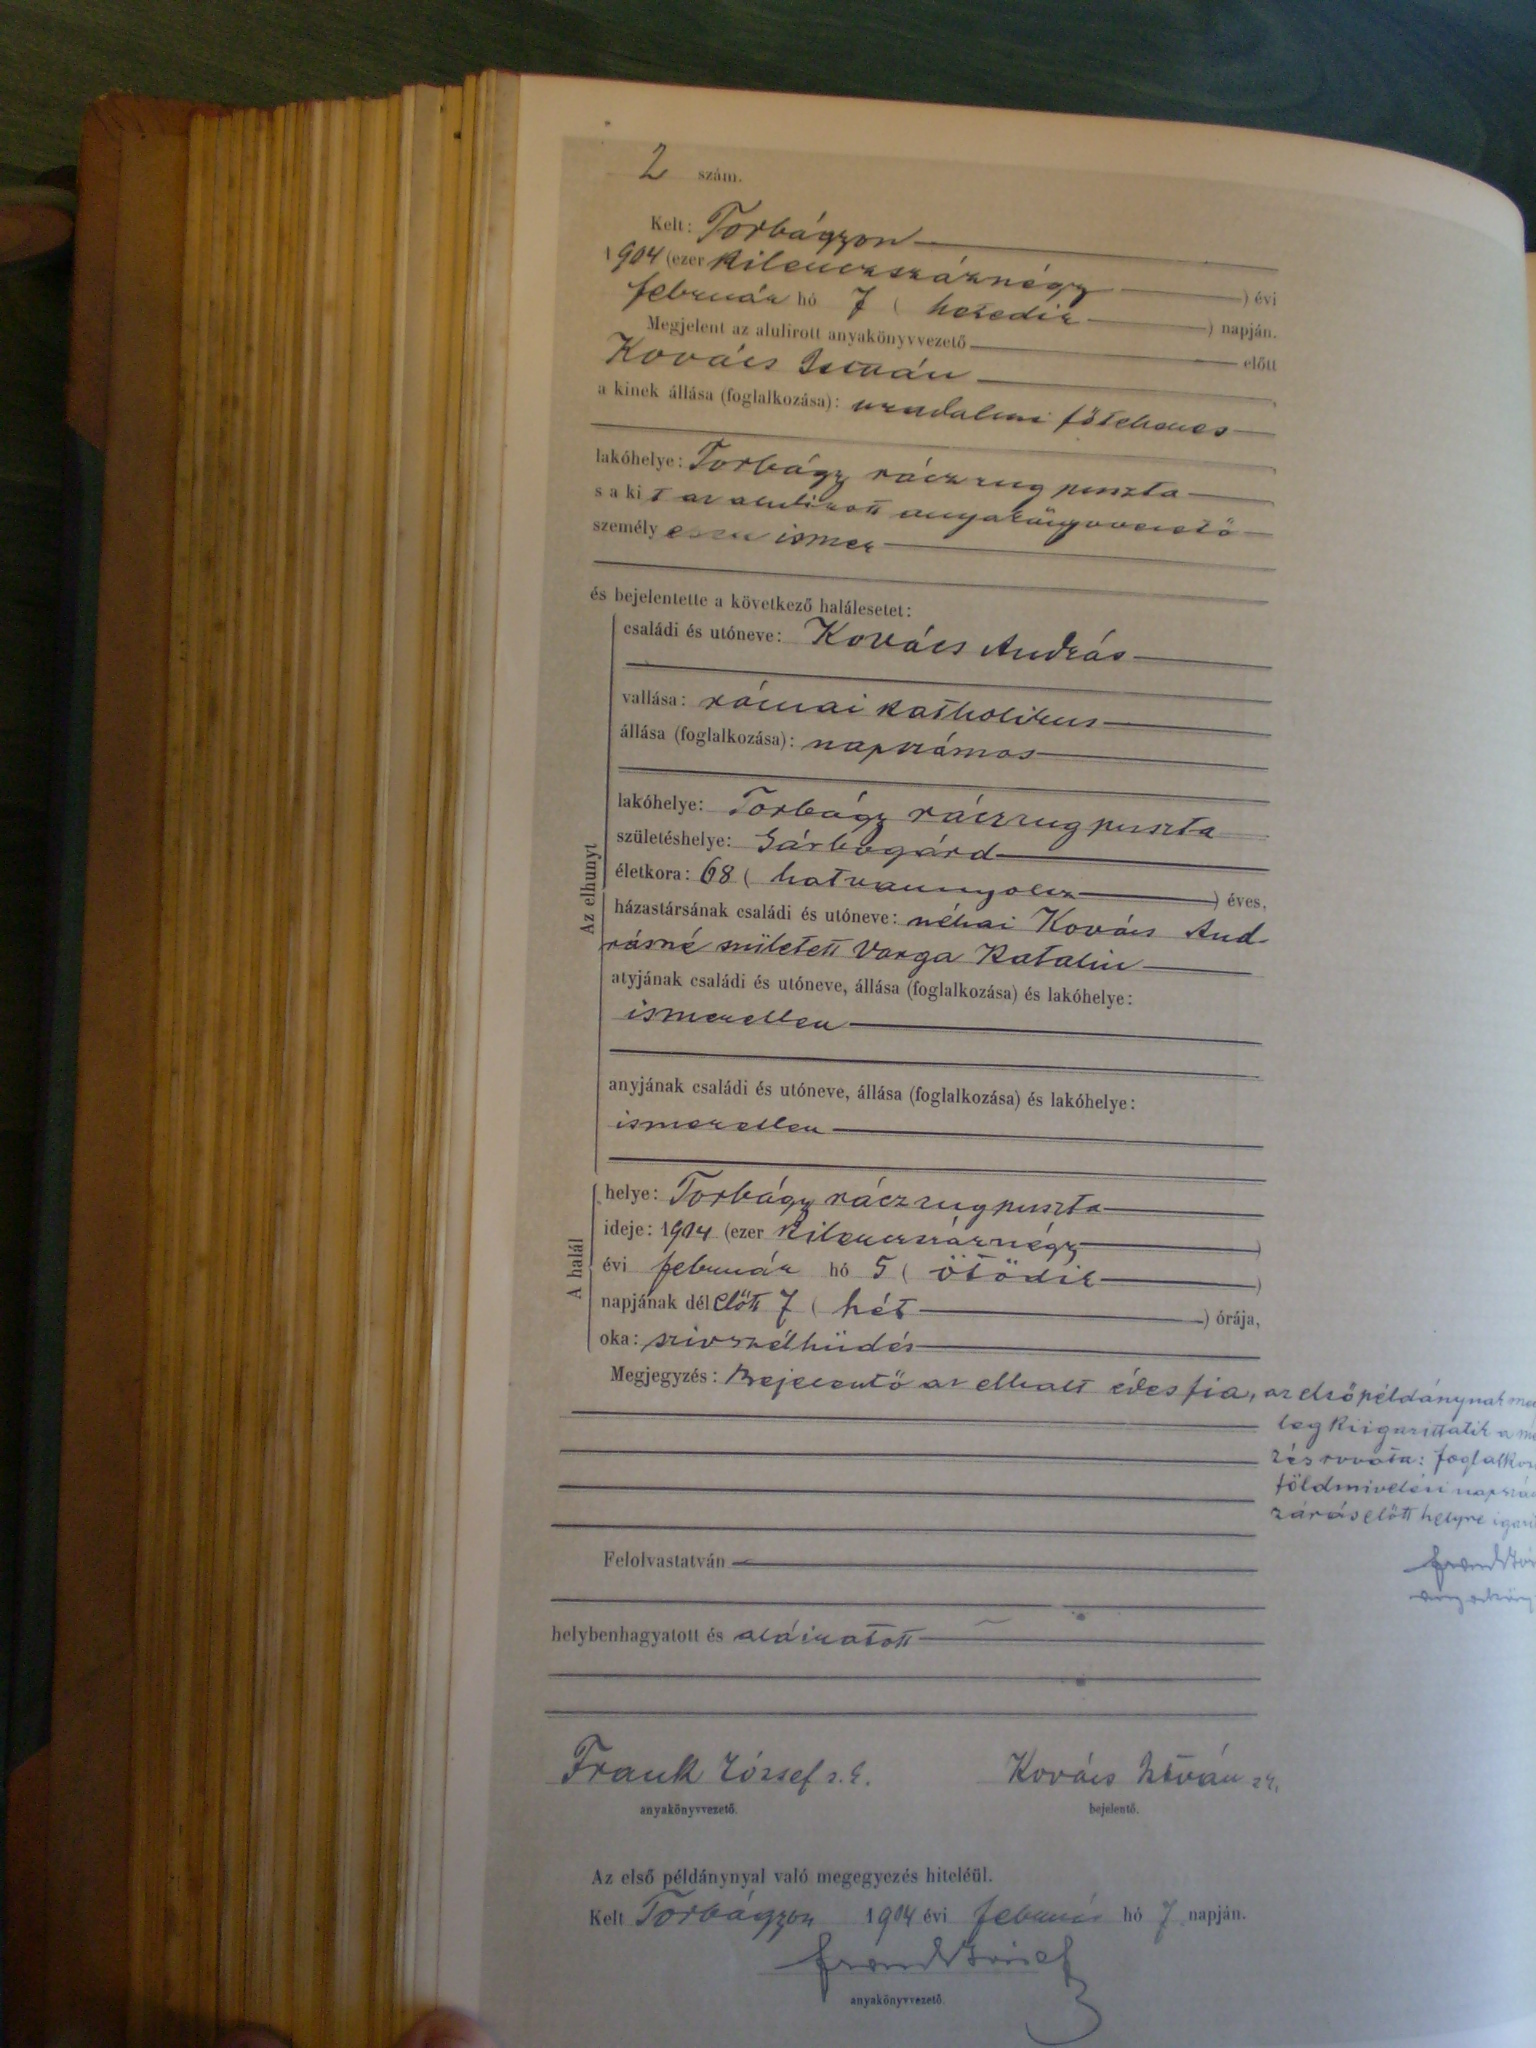 2 szám.
Kelt: Torbágyon
1904 (ezer kilenczszáznégy ) évi
február hó 7 ( hetedik ) napján.
Megjelent az alulirott anyakönyvvezető előtt
Kovács István
a kinek állása (foglalkozása): uradalmi főtehenes
lakóhelye: Torbágy ráczzug puszta
s a kit az alulirott anyakönyvvezető
személyesen ismer
és bejelentette a következő halálesetet:
Az elhunyt
családi és utóneve: Kovács András
vallása: római katholikus
állása (foglalkozása): napszámos
lakóhelye: Torbágy ráczzug puszta
születéshelye: Sárbogárd
életkora: 68 ( hatvannyolcz ) éves,
házastársának családi és utóneve: néhai Kovács And-
rásné született Varga Katalin
atyjának családi és utóneve, állása (foglalkozása) és lakóhelye:
ismeretlen
anyjának családi és utóneve, állása (foglalkozása) és lakóhelye:
ismeretlen
A halál
helye: Torbágy ráczzug puszta
ideje: 1904 (ezer kilenczszáznégy )
évi február hó 5 ( ötödik )
napjának délelőtt 7 ( hét ) órája,
oka: szivszélhüdés
Megjegyzés: Bejelentő az elhalt édes fia, az első példánynak
leg kiigazittatik a
zés rovata:
földmivelési
zárás előtt helyre
Felolvastatván
helybenhagyatott és aláiratott
Frank József s. k. Kovács István s k.
anyakönyvvezető. bejelentő.
Az első példánynyal való megegyezés hiteléül.
Kelt Torbágyon 1904 évi február hó 7 napján.
Frank József
anyakönyvvezető.